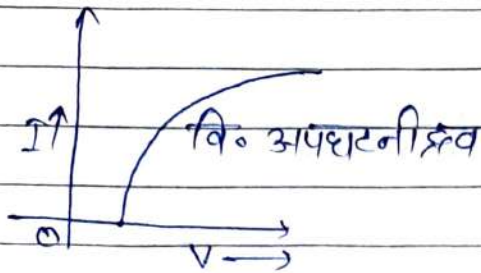 I↑
वि॰ अपघटनी द्रव
O
V →